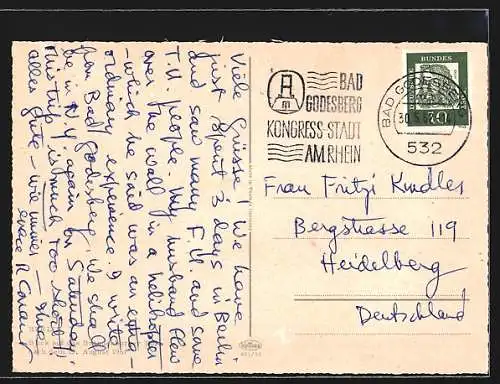 Viele Grüsse! We have
just spent 3 days in Berlin
and saw many F.U. and some
T.U. people. My husband flew
over the wall in a helikopter
– which he said was an extra-
ordinary experience. I write
from Bad Godesberg. We shall
be in N.Y. again on Saturday!
This trip is much too short!
alles Gute – wie immer –
August 1961
BAD
GODESBERG
KONGRESS-STADT
AM RHEIN
DEUTSCHE BUNDESPOST
BAD GODESBERG
30.5.
532
Frau Fritzi Kindler
Bergstrasse 119
Heidelberg
Deutschland